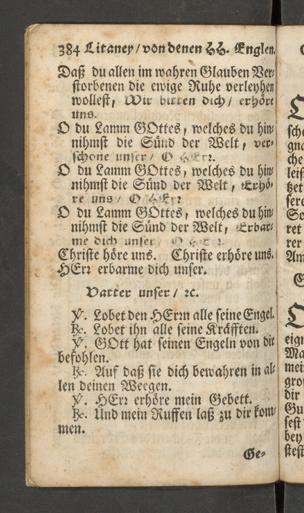 384 Litaney / von denen HH. Englen.
Daß du allen im wahren Glauben Ver-
storbenen die ewige Ruhe verleyhen
wollest, Wir bitten dich / erhöre
uns.
O du Lamm GOttes, welches du hin-
nihmst die Sünd der Welt, ver-
schone unser / O HErr.
O du Lamm GOttes, welches du hin-
nihmst die Sünd der Welt, Erhö-
re uns / O HErr
O du Lamm GOttes, welches du hin-
nihmst die Sünd der Welt, Erbar-
me dich unser / O HErr.
Christe höre uns. Christe erhöre uns.
HErr erbarme dich unser.
Vatter unser / ꝛc.
℣. Lobet den HErrn alle seine Engel.
℟. Lobet ihn alle seine Kräfften.
℣. GOtt hat seinen Engeln von dir
befohlen.
℟. Auf daß sie dich bewahren in al-
len deinen Weegen.
℣. HErr erhöre mein Gebett.
℟. Und mein Ruffen laß zu dir kom-
men.
Ge-